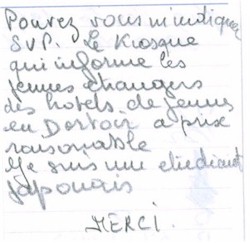 Pouvez vous m'indiquer
SVP. Le Kiosque
qui informe les
jeunes etrangers
des hotels de jeunes
en Dortoir a prix
raisonable
Je suis une etudiant
japonais
MERCI.